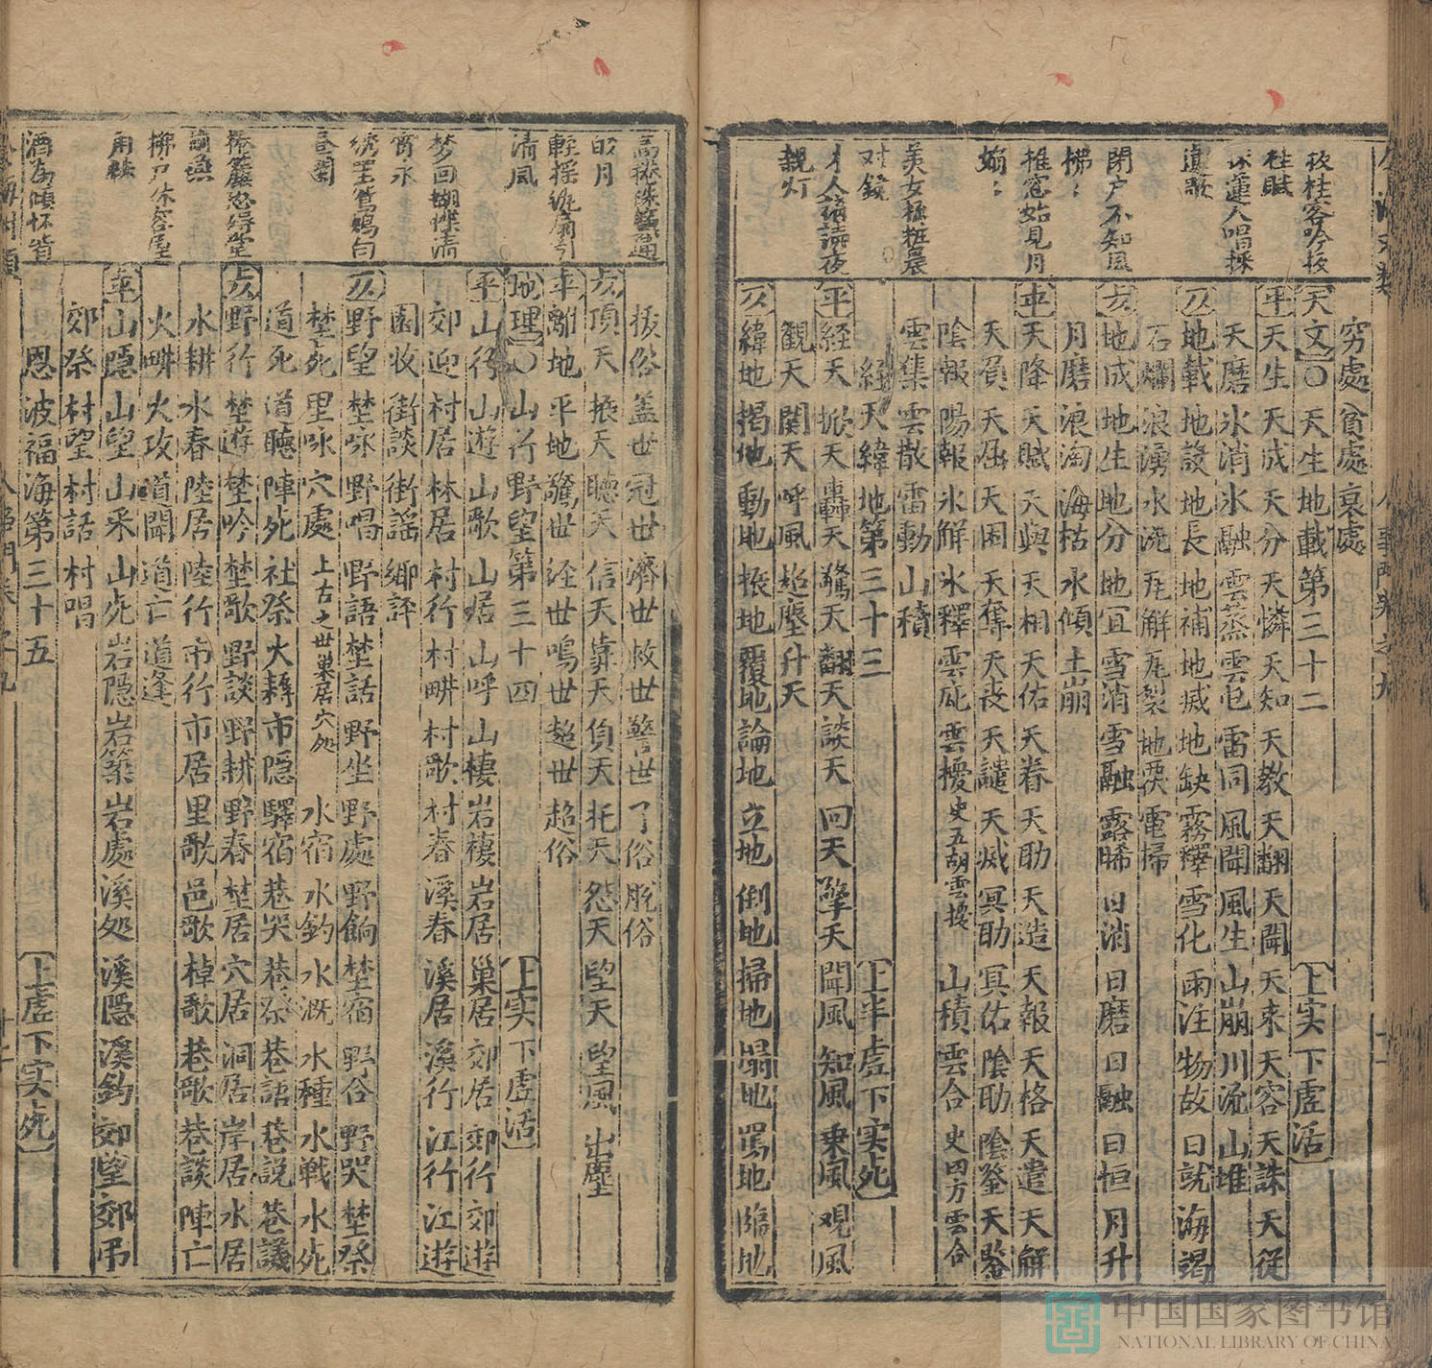 窮處 貧處 哀處
天文〇天生地載第三十二 上实下虛活
平 天生 天成 天分 天憐 天知 天教 天翻 天開 天来 天容 天誅 天從
天磨 氷消 氷融 雲蒸 雲屯 雷同 風聞 風生 山崩 川流 山堆
仄 地載 地設 地長 地補 地滅 地缺 霧釋 雪化 雨注 物故 日就 海竭
石爛 浪湧 水流 瓦解 瓦裂 地震 電掃
仄 地成 地生 地分 地宜 雪消 雪融 露晞 日消 日磨 日融 日恒 月升
月磨 浪淘 海枯 水傾 土崩
平 天降 天賦 天與 天相 天佑 天眷 天助 天造 天報 天格 天遣 天解
天負 天屈 天困 天奪 天丧 天譴 天滅 冥助 冥佑 陰助 陰鉴
陰報 陽報 氷解 氷釋 雲庇 雲擾 史五胡雲擾 山積 雲合 史四方雲合
雲集 雲散 雷動 山積
経天緯地第三十三 上半虛下实死
平 経天 掀天 轟天 驚天 翻天 談天 回天 擎天 聞風 知風 乗風 观風
觀天 開天 呼風 超塵 升天
仄 緯地 掲地 動地 振地 覆地 論地 立地 倒地 掃地 塌地 罵地 臨地
折桂客吟折
桂賦
採蓮人唱採
蓮歌
閉户不知風
拂拂
推窓始見月
美女梳粧晨
对鏡
才人讀夜
親灯
拔俗 盖世 冠世 濟世 救世 警世 了俗 脫俗
仄 頂天 振天 聴天 信天 靠天 負天 托天 怨天 望天 望風 出塵
平 離地 平地 驚世 淫世 鳴世 超世 超俗
地理〇山行野望第三十四 上实下虛活
平 山行 山遊 山歌 山居 山呼 山棲 岩棲 岩居 巢居 郊居 郊行 郊遊
郊迎 村居 林居 村行 村畊 村歌 村舂 溪舂 溪居 溪行 江行 江遊
園收 街談 街謡 鄉評
仄 野望 埜咏 野唱 野語 埜話 野坐 野處 野餉 埜宿 野合 野哭 埜祭
埜死 里咏 穴處 上古之世巢居穴処 水宿 水釣 水溉 水種 水戦 水死
道死 道聴 陣死 社祭 大耨 市隐 驛宿 巷哭 巷祭 巷語 巷説 巷議
仄 野行 埜遊 埜吟 埜歌 野談 野耕 野舂 埜居 穴居 洞居 岸居 水居
水耕 水舂 陸居 陸行 市行 市居 里歌 邑歌 棹歌 巷歌 巷談 陣亡
火畊 火攻 道聞 道亡 道逢
平 山隱 山望 山采 山死 岩隐 岩築 岩處 溪処 溪隱 溪釣 郊望 郊吊
郊祭 村望 村話 村唱
恩波福海第三十五 上虛下实死
高捲珠簾邀
皎月
輕揺紈扇引
清風
梦回蝴蝶清
宵永
綉罢鴛鴦白
昼闌